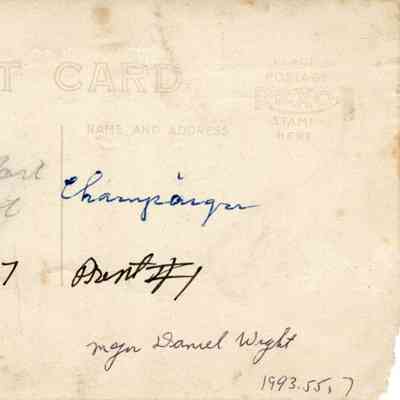 T CARD
PLACE
POSTAGE
REXO
STAMP
HERE
NAME AND ADDRESS
Champaigne
7
Print #1
Major Daniel Wight
1993.55.7